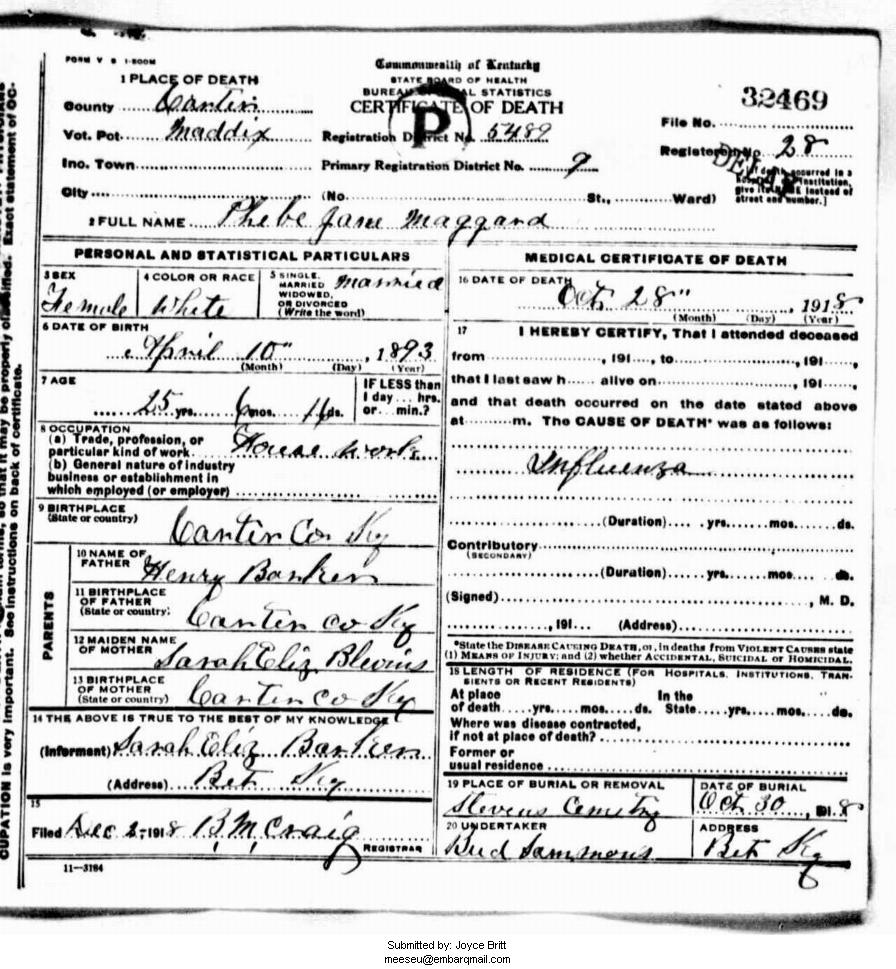 FORM V S 1-500M
Commonwealth of Kentucky
STATE BOARD OF HEALTH
BUREAU OF VITAL STATISTICS
CERTIFICATE OF DEATH
P
1 PLACE OF DEATH
County Carter
Vot. Pct. Maddix
Inc. Town
City (No. St., Ward)
Registration District No. 5489
Primary Registration District No. 9
32469
File No.
Registered No. 28
[If death occurred in a
hospital or institution,
give its NAME instead of
street and number.]
2 FULL NAME Phebe Jane Maggard
PERSONAL AND STATISTICAL PARTICULARS
3 SEX
Female
4 COLOR OR RACE
White
5 SINGLE, MARRIED WIDOWED, OR DIVORCED (Write the word)
Married
6 DATE OF BIRTH
April 10", 1893
(Month) (Day) (Year)
7 AGE
25 yrs. 6 mos. ds.
IF LESS than
1 day... hrs.
or... min.?
8 OCCUPATION
(a) Trade, profession, or
particular kind of work House work
(b) General nature of industry
business or establishment in
which employed (or employer)
9 BIRTHPLACE
(State or country)
Carter Co Ky
PARENTS
10 NAME OF FATHER
Henry
11 BIRTHPLACE OF FATHER (State or country)
Carter co Ky
12 MAIDEN NAME OF MOTHER
Sarah Eliz Blevins
13 BIRTHPLACE OF MOTHER (State or country)
Carter co Ky
14 THE ABOVE IS TRUE TO THE BEST OF MY KNOWLEDGE
(Informant) Sarah Eliz
(Address) Bet Ky
15
Filed Dec 2, 1918 B, M, Craig
REGISTRAR
11—3184
MEDICAL CERTIFICATE OF DEATH
16 DATE OF DEATH
Oct 28", 1918
(Month) (Day) (Year)
17 I HEREBY CERTIFY, That I attended deceased
from , 191 , to , 191 ,
that I last saw h alive on , 191 ,
and that death occurred on the date stated above
at m. The CAUSE OF DEATH* was as follows:
Influenza
(Duration) yrs. mos. ds.
Contributory
(SECONDARY)
(Duration) yrs. mos. ds.
(Signed) , M. D.
, 191 (Address)
*State the DISEASE CAUSING DEATH, or, in deaths from VIOLENT CAUSES state
(1) MEANS OF INJURY; and (2) whether ACCIDENTAL, SUICIDAL or HOMICIDAL.
18 LENGTH OF RESIDENCE (FOR HOSPITALS, INSTITUTIONS, TRAN-
SIENTS OR RECENT RESIDENTS)
At place In the
of death yrs. mos. ds. State yrs. mos. ds.
Where was disease contracted,
if not at place of death?
Former or
usual residence
19 PLACE OF BURIAL OR REMOVAL
Stevens
DATE OF BURIAL
Oct 30, 1918
20 UNDERTAKER
Bud Sammons
ADDRESS
Bet Ky
CUPATION is very important. See instructions on back of certificate.
so that it may be properly classified. Exact statement of OC-
Submitted by: Joyce Britt
meeseu@embarqmail.com